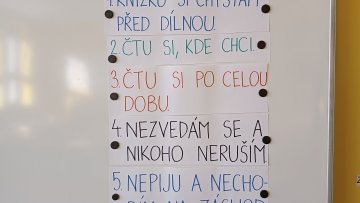 1. KNÍŽKU SI CHYSTÁM
PŘED DÍLNOU.
2. ČTU SI, KDE CHCI.
3. ČTU SI PO CELOU
DOBU.
4. NEZVEDÁM SE A
NIKOHO NERUŠÍM.
5. NEPIJU A NECHO-
DÍM NA ZÁCHOD